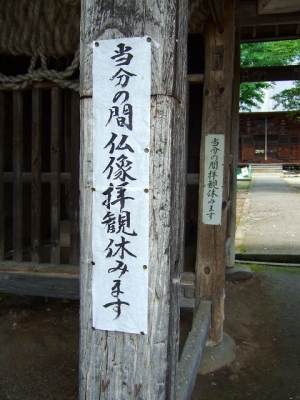 当分の間仏像拝観休みます
当分の間拝観休みます